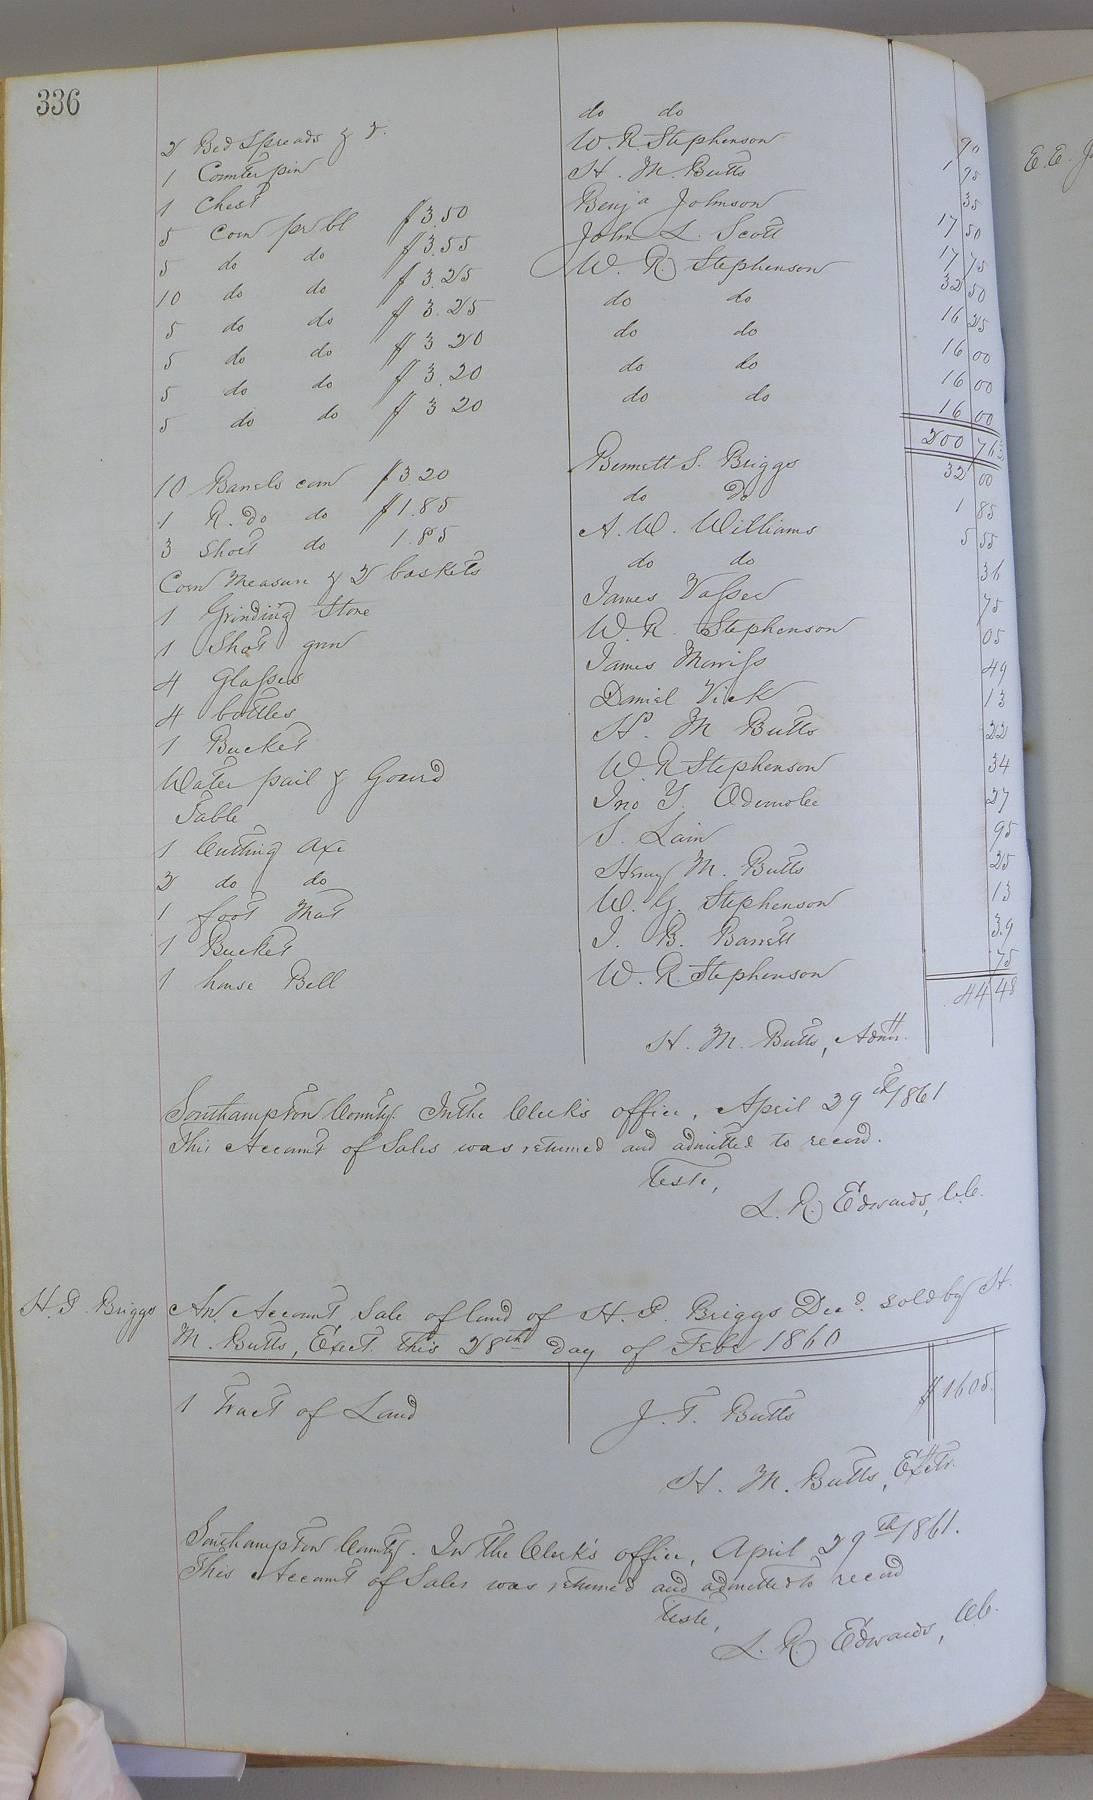 336
do do
2 Bed Spreads & W. R Stephenson 90
1 Counterpin H. M Butts 1 95
1 Chest Benja Johnson 35
5 Corn pr bl $3.50 John L. Scott 17 50
5 do do $3.55 W. R. Stephenson 17 75
10 do do $3.25 do do 32 50
5 do do $3.25 do do 16 25
5 do do $3 20 do do 16 00
5 do do $3.20 do do 16 00
5 do do $3 20 16 00
200 76
10 Barrels corn $3.20 Bennett S. Briggs 32 00
1 R. do do $1.85 do do 1 85
3 Short do 1.85 A. W. Williams 5 55
Corn Measure & 2 baskets do do 31
1 Grinding Stone James Vasser 75
1 Shot gun W. R. Stephenson 05
4 Glasses James Morriss 49
4 bottles Daniel Vick 13
1 Bucket H. M Butts 22
Water pail & Gourd W. R Stephenson 34
Table Jno Y. 27
1 Cutting Axe S. Lain 95
2 do do Henry M. Butts 25
1 foot Mat W. G. Stephenson 13
1 Bucket J. B. Barrett 39
1 house Bell W. R. Stephenson 75
44 48
H. M. Butts, Admr.
Southampton County. In the Clerk's office, April 29th 1861
This Account of Sales was returned and admitted to record.
Teste,
L. R. Edwards, C.C.
H. P. Briggs An Account Sale of land of H. P. Briggs Decd. sold by H.
M. Butts, Exect. this 28th Day of Feby 1860
1 Tract of Land J. T. Butts $1605.
H. M. Butts, Exetr.
Southampton County. In the Clerk's office, April 29th 1861.
This Account of Sales was returned and admitted to record
Teste,
L. R. Edwards, C.C.
E. E.